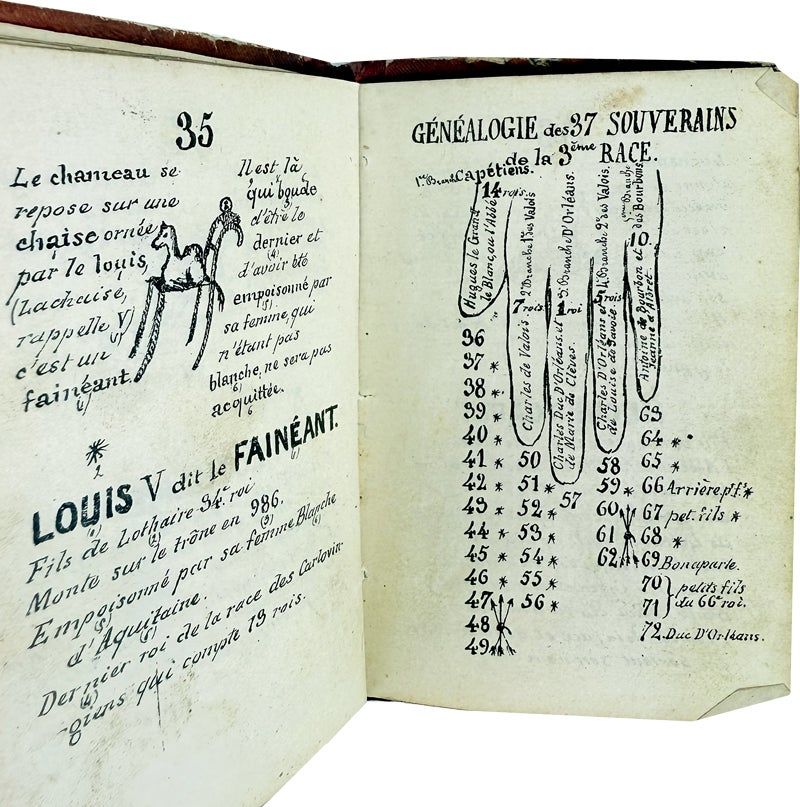 35
Le chameau se
repose sur une
chaise ornée
par le louis,
(Lachaise,
rappelle V)
c'est un
fainéant.
Il est là
qui boude
d'être le
dernier et
d'avoir été
empoisonné par
sa femme, qui
n'étant pas
blanche, ne sera pas
acquittée.
LOUIS V dit le FAINÉANT.
Fils de Lothaire 34e roi
Monte sur le trône en 986.
Empoisonné par sa femme Blanche
d'Aquitaine.
Dernier roi de la race des Carlovin-
giens qui compte 13 rois.
GÉNÉALOGIE des 37 SOUVERAINS
de la 3ème RACE.
1re Branche Capétiens.
14 rois.
Hugues le Grand
le Blanc, ou l'Abbé
36
37 *
38 *
39 *
40 *
41 *
42 *
43 *
44 *
45 *
46 *
47
48
49
2e Branche 1re des Valois
7 rois.
Charles de Valois.
50
51 *
52 *
53 *
54 *
55 *
56 *
3e Branche D'Orléans.
1 roi
Charles Duc D'Orléans, et
de Marie de Clèves.
57
4e Branche 2e des Valois.
5 rois
Charles D'Orléans et
de Louise de Savoie.
58
59 *
60
61
62
5ème Branche
des Bourbons.
10.
Antoine de Bourbon et
Jeanne d'Albret
63
64 *
65 *
66 Arrière p.fs *
67 pet. fils *
68 *
69 Bonaparte.
70
71
petits fils
du 66e roi.
72. Duc D'Orléans.